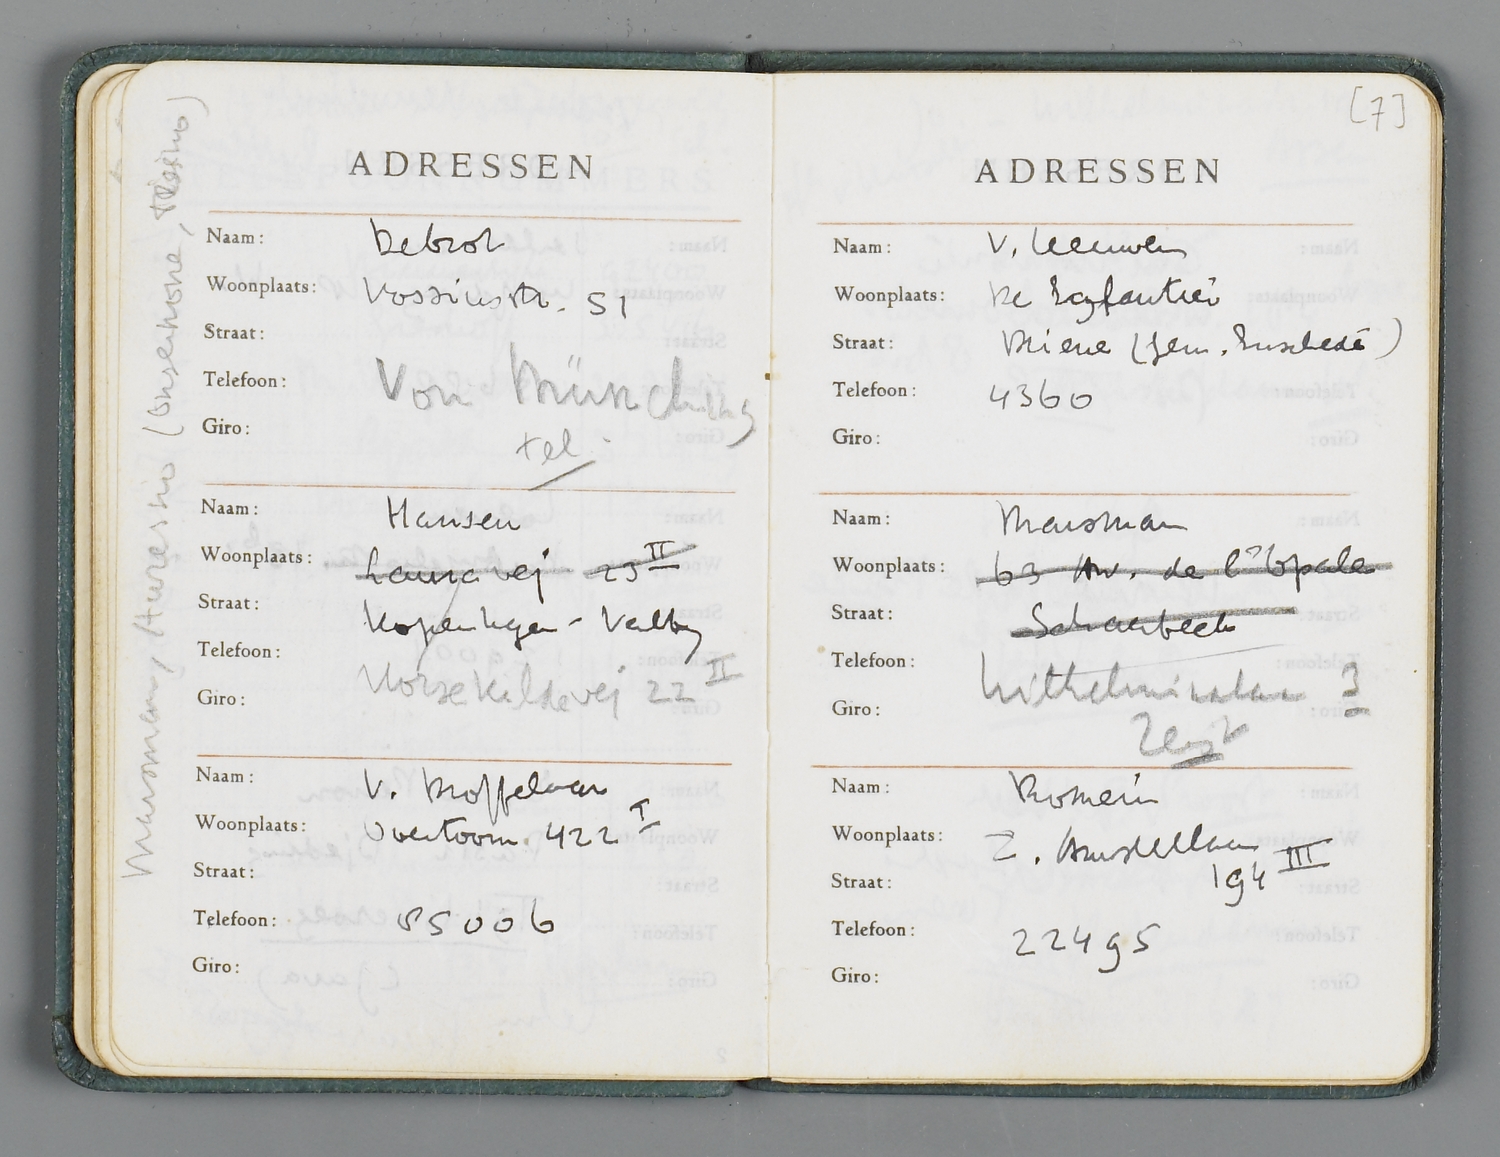 ADRESSEN
Naam: Debrot
Woonplaats: Vossiusstr. 51
Straat:
Telefoon: Von Münching
Giro: tel.
Naam: Hansen
Woonplaats: 23 II
Straat: Kopenhagen - Valby
Telefoon:
Giro: 22 II
Naam: v.
Woonplaats: Overtoom 422 I
Straat:
Telefoon: 85006
Giro:
[7]
ADRESSEN
Naam: v. Leeuwen
Woonplaats: De
Straat: (gem. Enschede)
Telefoon: 4360
Giro:
Naam: Marsman
Woonplaats: 63 Av. de l'Opale
Straat: Schaerbeek
Telefoon: 3
Giro: Zeist
Naam: Romein
Woonplaats: Z. Amstellaan
Straat: 194 III
Telefoon: 22495
Giro: